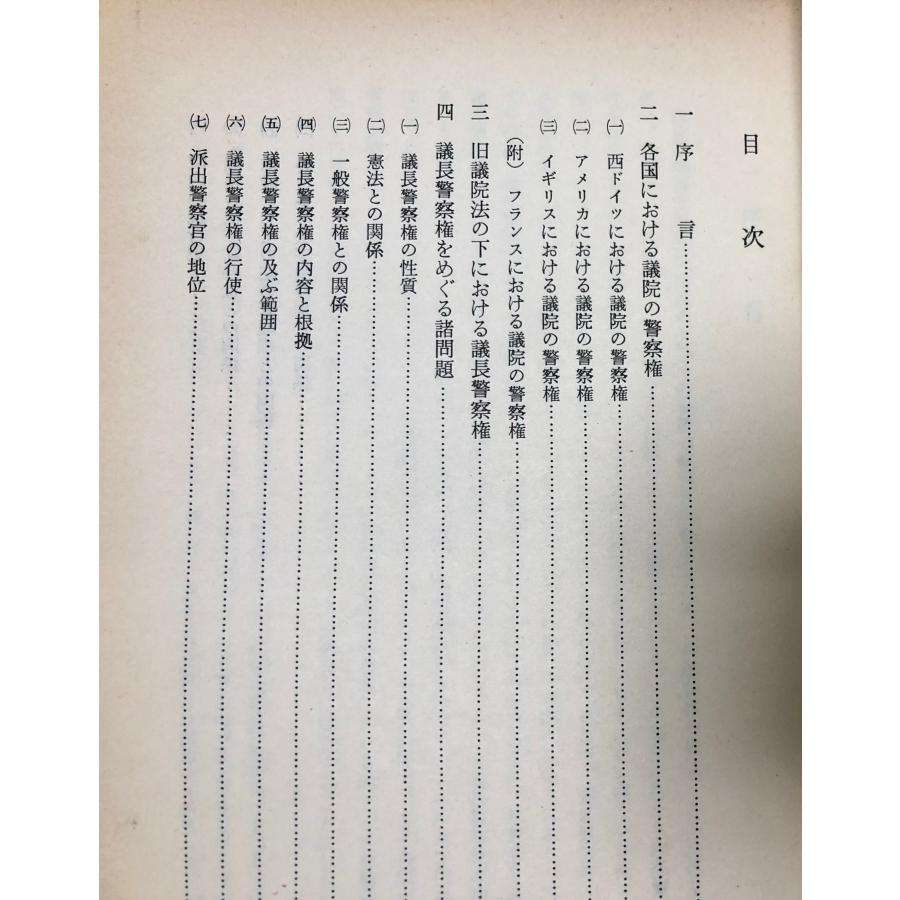 目次
一 序言
二 各国における議院の警察権
㈠ 西ドイツにおける議院の警察権
㈡ アメリカにおける議院の警察権
㈢ イギリスにおける議院の警察権
(附) フランスにおける議院の警察権
三 旧議院法の下における議長警察権
四 議長警察権をめぐる諸問題
㈠ 議長警察権の性質
㈡ 憲法との関係
㈢ 一般警察権との関係
㈣ 議長警察権の内容と根拠
㈤ 議長警察権の及ぶ範囲
㈥ 議長警察権の行使
㈦ 派出警察官の地位